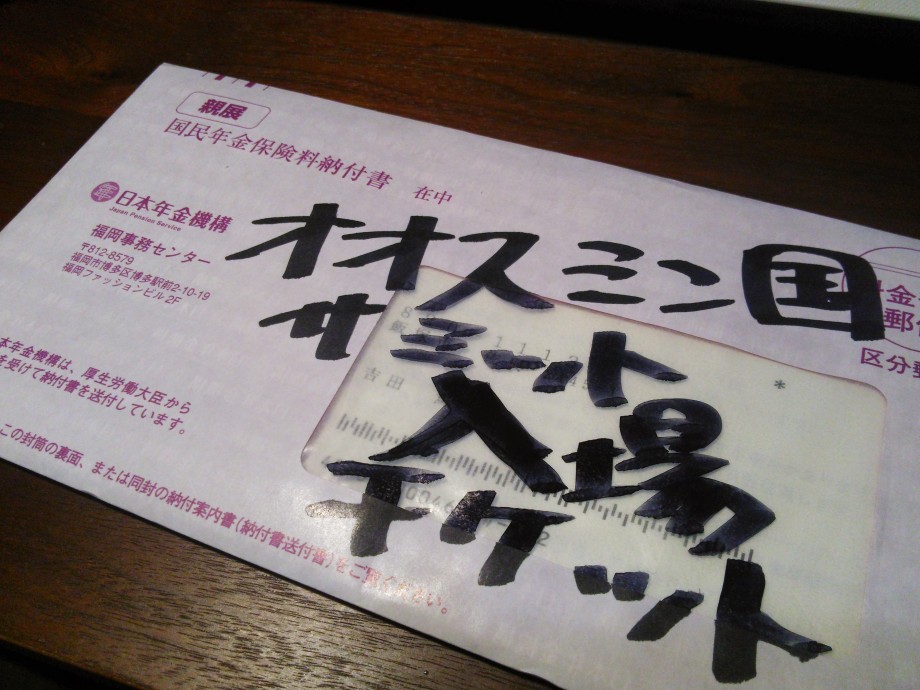 親展
国民年金保険料納付書 在中
日本年金機構
Japan Pension Service
福岡事務センター
〒812-8579
福岡市博多区博多駅前2-10-19
福岡ファッションビル2F
オオスミン国
サミット
入場
チケット
吉田
*
区分郵
本年金機構は、厚生労働大臣から
を受けて納付書を送付しています。
この封筒の裏面、または同封の納付案内書(納付書送付書)をご覧ください。